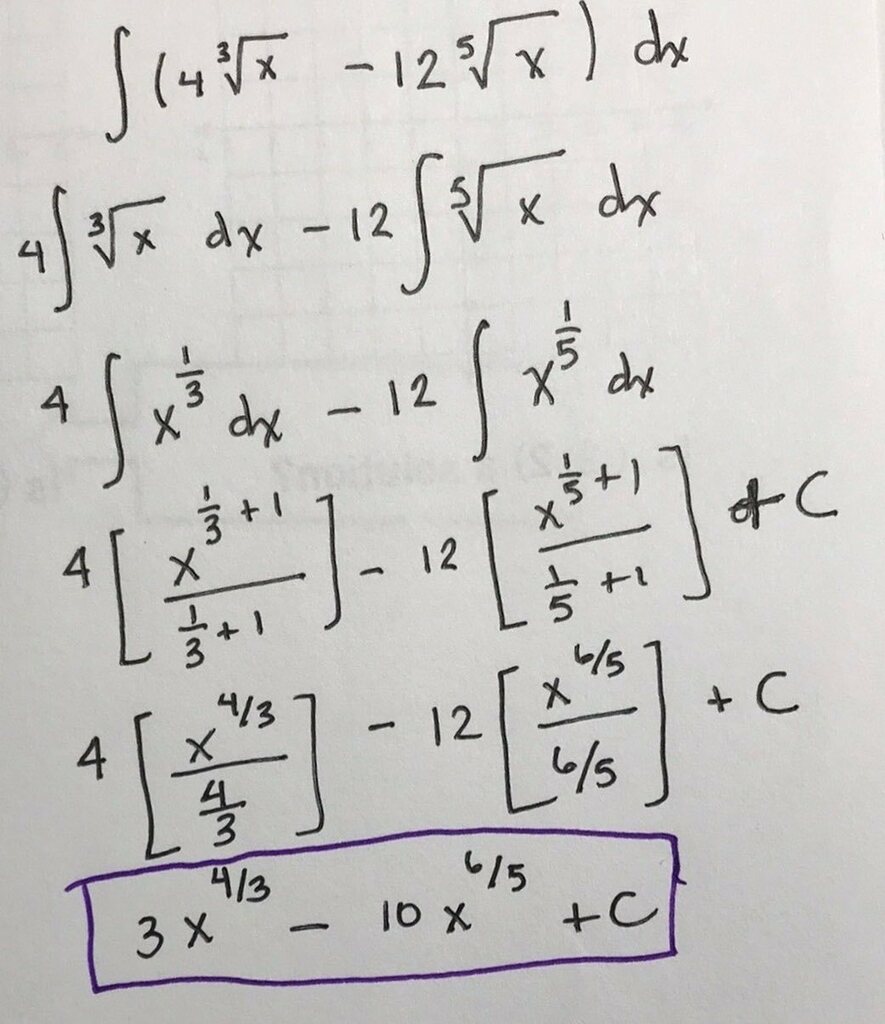 ∫(4∛x − 12 ⁵√x) dx
4∫∛x dx − 12∫⁵√x dx
4∫x^{1/3} dx − 12∫x^{1/5} dx
4[x^{1/3 + 1}/(1/3 + 1)] − 12[x^{1/5 + 1}/(1/5 + 1)] + C
4[x^{4/3}/(4/3)] − 12[x^{6/5}/(6/5)] + C
3x^{4/3} − 10x^{6/5} + C